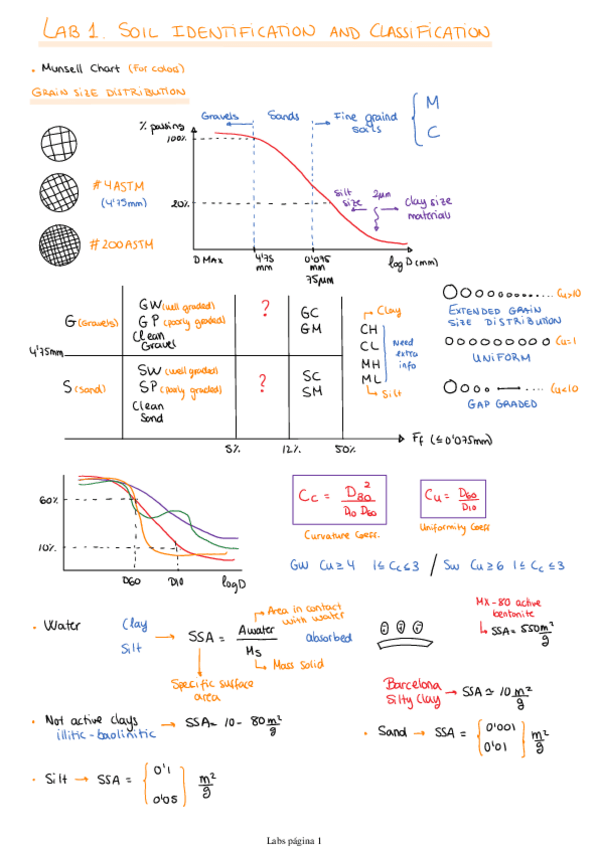 LAB 1. SOIL IDENTIFICATION AND CLASSIFICATION
• Munsell Chart (For colors)
GRAIN SIZE DISTRIBUTION
% passing
Gravels
Sands
Fine graind soils
M
C
100%
20%
#4ASTM
(4'75mm)
#200ASTM
Silt size
2μm
clay size materials
D MAX
4'75 mm
0'075 mm
75μm
log D (mm)
G (Gravels)
GW (well graded)
GP (poorly graded)
Clean Gravel
?
GC
GM
Clay
CH
CL
MH
ML
Silt
Need extra info
4'75mm
S (sand)
SW (well graded)
SP (poorly graded)
Clean Sand
?
SC
SM
5%
12%
50%
Ff (≤0'075mm)
Cu>10
EXTENDED GRAIN SIZE DISTRIBUTION
Cu=1
UNIFORM
Cu<10
GAP GRADED
60%
10%
D60
D10
log D
Cc = D30² / D10 D60
Curvature Coeff.
Cu = D60 / D10
Uniformity Coeff
GW Cu≥4 1≤Cc≤3 / SW Cu≥6 1≤Cc≤3
• Water
Clay
Silt
SSA = Awater / Ms
Area in contact with water
absorbed
Mass solid
Specific surface area
MX-80 active bentonite
SSA = 550 m²/g
Barcelona Silty Clay → SSA ≃ 10 m²/g
• Not active clays → SSA = 10 - 80 m²/g
illitic-kaolinitic
• Sand → SSA = { 0'001 0'01 } m²/g
• Silt → SSA = { 0'1 0'05 } m²/g
Labs página 1